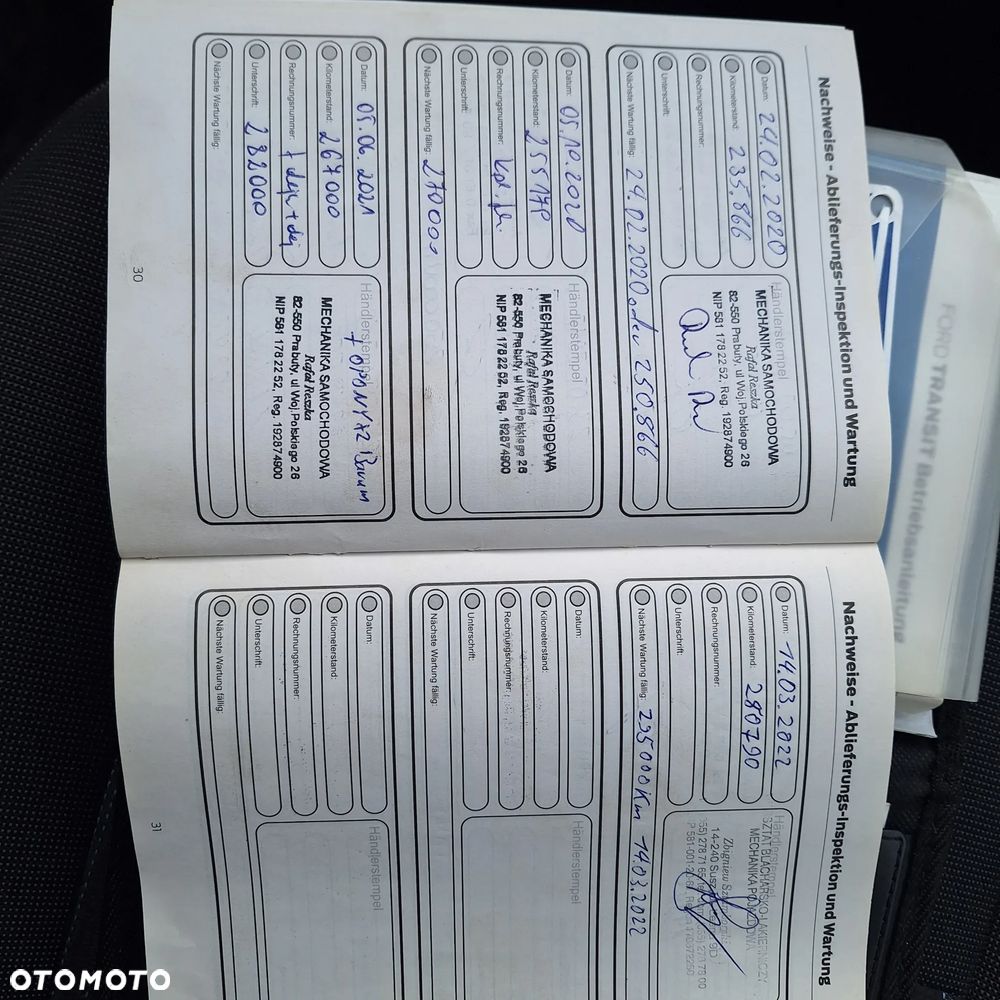 Nachweise - Ablieferungs-Inspektion und Wartung
Datum: 24.02.2020
Kilometerstand: 235.866
Rechnungsnummer:
Unterschrift:
Nächste Wartung fällig: 24.02.2020 oder 250.866
Händlerstempel
MECHANIKA SAMOCHODOWA
Rafał Reszka
82-550 Prabuty, ul Woj.Polskiego 26
NIP 581 178 22 52, Reg. 192874900
Datum: 05.10.2020
Kilometerstand:
Rechnungsnummer:
Unterschrift:
Nächste Wartung fällig: 270000
Händlerstempel
MECHANIKA SAMOCHODOWA
Rafał Reszka
82-550 Prabuty, ul Woj.Polskiego 26
NIP 581 178 22 52, Reg. 192874900
Datum: 05.06.2021
Kilometerstand: 267000
Rechnungsnummer:
Unterschrift: 282000
Nächste Wartung fällig:
Händlerstempel
+ OPONY X2 Barum
MECHANIKA SAMOCHODOWA
Rafał Reszka
82-550 Prabuty, ul Woj.Polskiego 26
NIP 581 178 22 52, Reg. 192874900
30
Nachweise - Ablieferungs-Inspektion und Wartung
Datum: 14.03.2022
Kilometerstand: 280790
Rechnungsnummer:
Unterschrift:
Nächste Wartung fällig: 295000 Km 14.03.2022
Händlerstempel
SZTAT BLACHARSKO-LAKIERNICZY
MECHANIKA POJAZDOWA
Zbigniew
14-240 Susz
Datum:
Kilometerstand:
Rechnungsnummer:
Unterschrift:
Nächste Wartung fällig:
Händlerstempel
Datum:
Kilometerstand:
Rechnungsnummer:
Unterschrift:
Nächste Wartung fällig:
Händlerstempel
31
FORD TRANSIT Betriebsanleitung
OTOMOTO